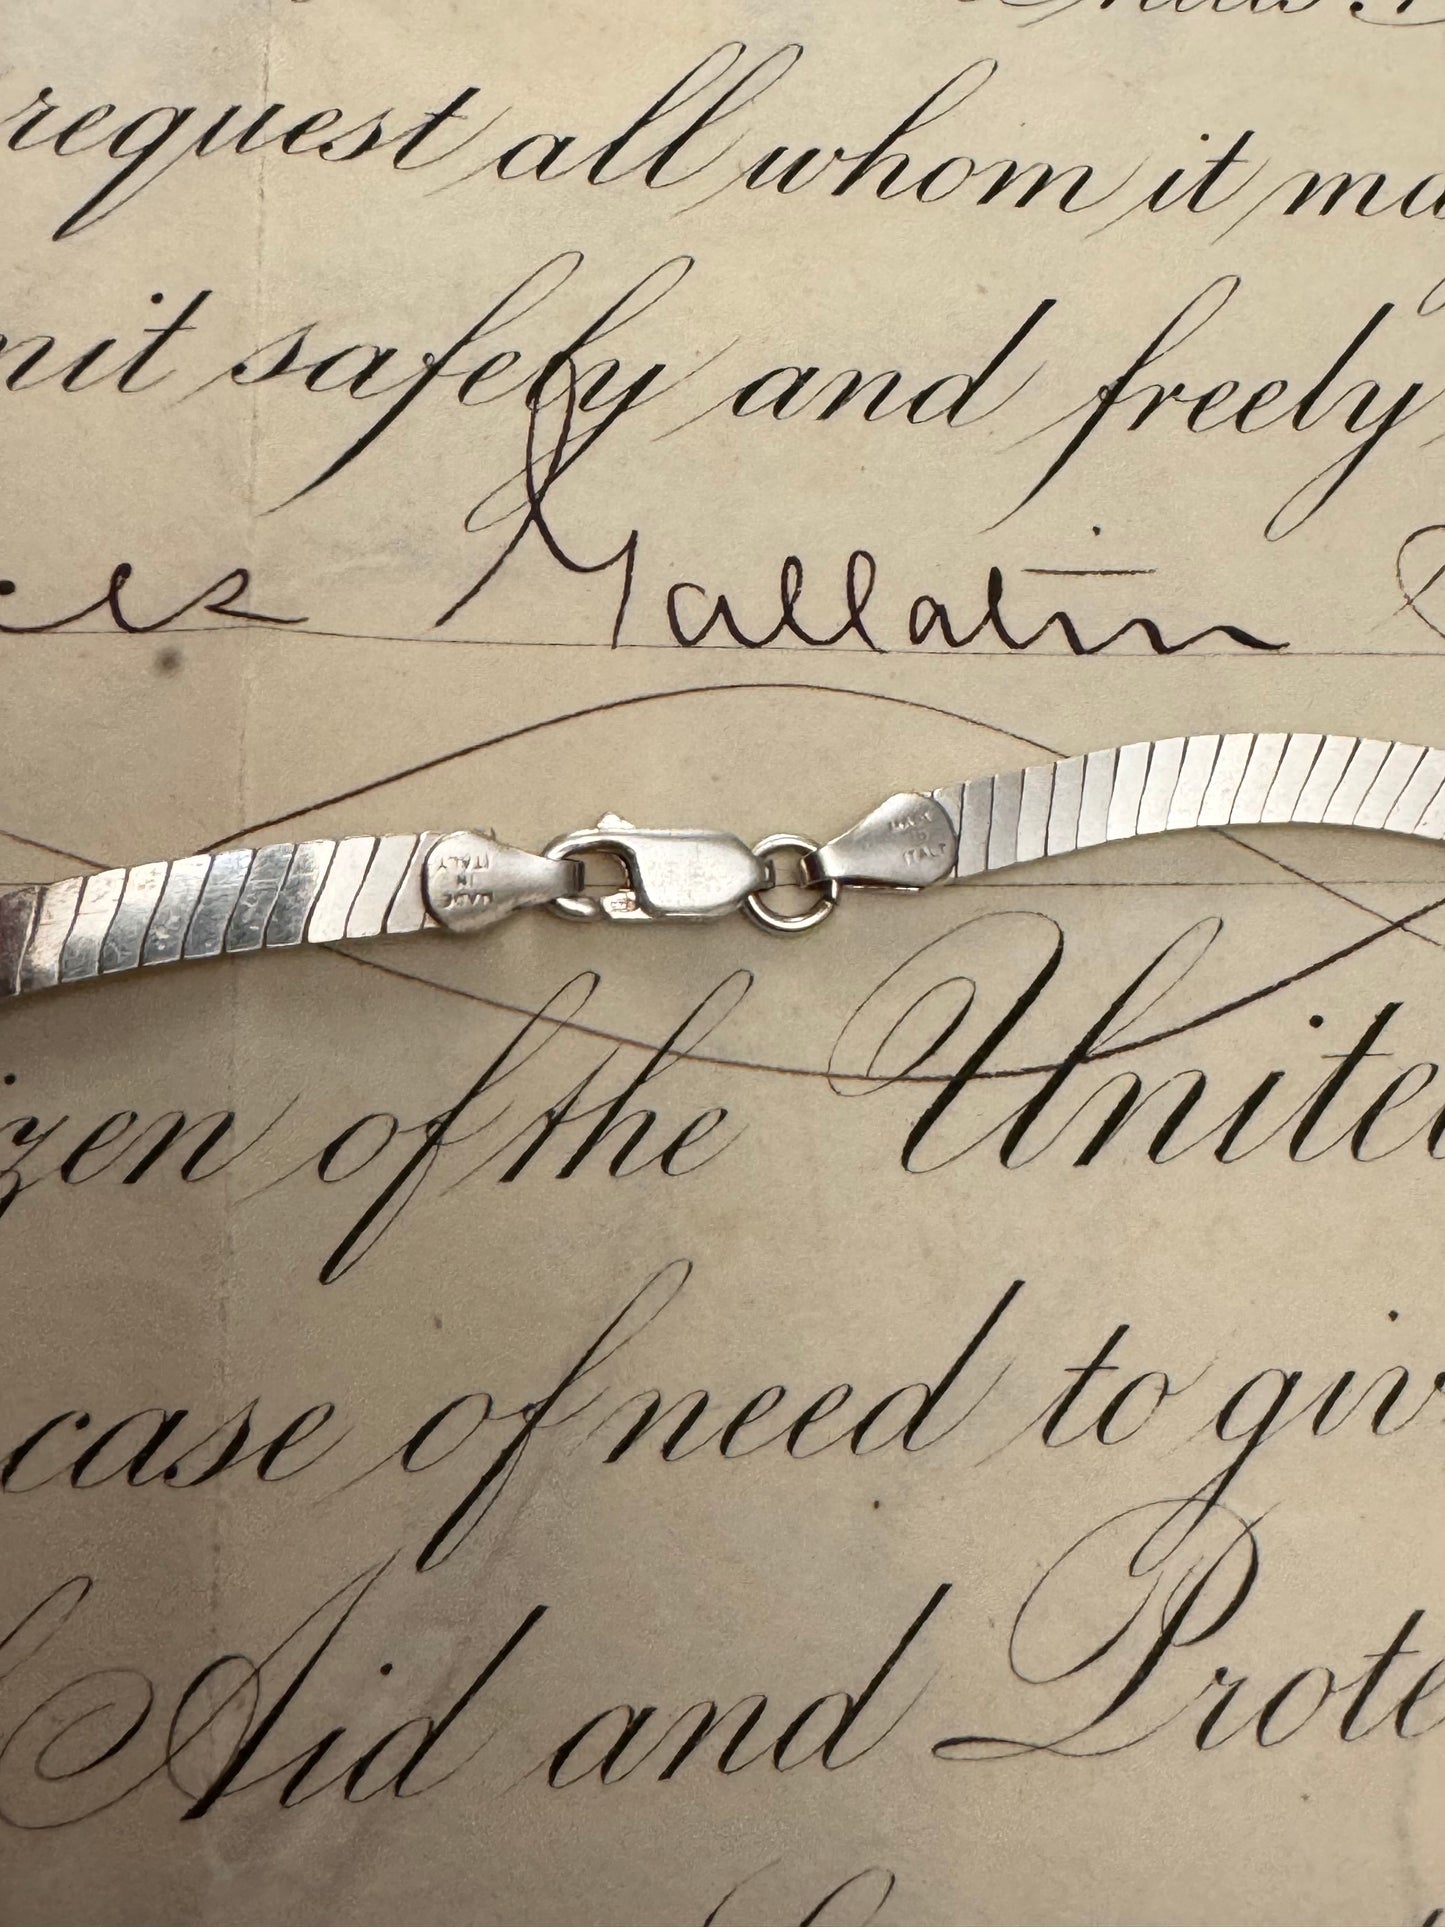 request all whom it ma
mit safely and freely
Gallatin
MADE
IN
ITALY
MADE
IN
ITALY
izen of the Unite
case of need to giv
Aid and Prote